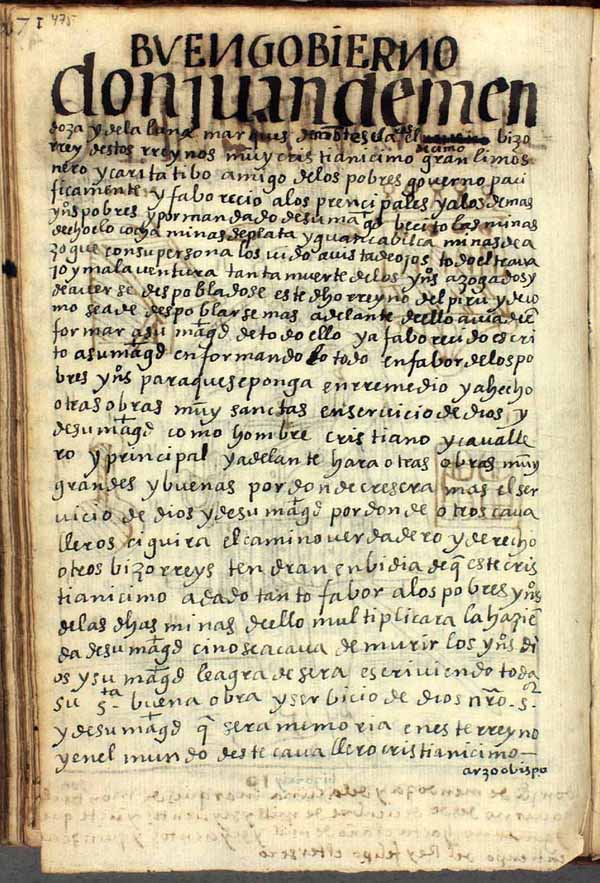 471 475
BVEN GOBIERNO
don juan de men
doza y de la luna marques de mõtesclaros el bizo
diamo
rrey destos rreynos muy cristianicimo gran limos
nero y caritatibo amigo de los pobres governo paci
ficamente y faborecio a los prencipales y a los demas
ynºs pobres y por mandado de su magd becito las minas
de choclo cocha minas de plata y guancabilca minas de a
zogue con su persona los uido a uista de ojos todo el traua
jo y mala ventura tanta muerte de los ynºs azogados y
de auerse despoblado este dho rreyno del piru y de co
mo se a de despoblarse mas adelante dello auia de ẽ
formar a su magd de todo ello y a faborecido escri
to a su magd enformando lo todo en fabor de los po
bres ynºs para que se ponga en rremedio y a hecho
otras obras muy sanctas en seruicio de dios y
de su magd como hombre cristiano y caualle
ro y principal y adelante hara otras obras muy
grandes y buenas por donde cresera mas el ser
uicio de dios y de su magd por donde otros caua
lleros ciguira el camino uerdadero y derecho
otros bizorreys tendran enbidia de q̃ este cris
tianicimo a dado tanto fabor a los pobres ynºs
de las dhas minas dello multiplicara la haziẽ
da de su magd ci no se acaua de murir los ynºs di
os y su magd le agradesera escriuiendo toda
su sta buena obra y serbicio de dios nro sor
y de su magd q̃ sera memoria en este rreyno
y en el mundo deste cauallero cristianicimo—
arzobispo